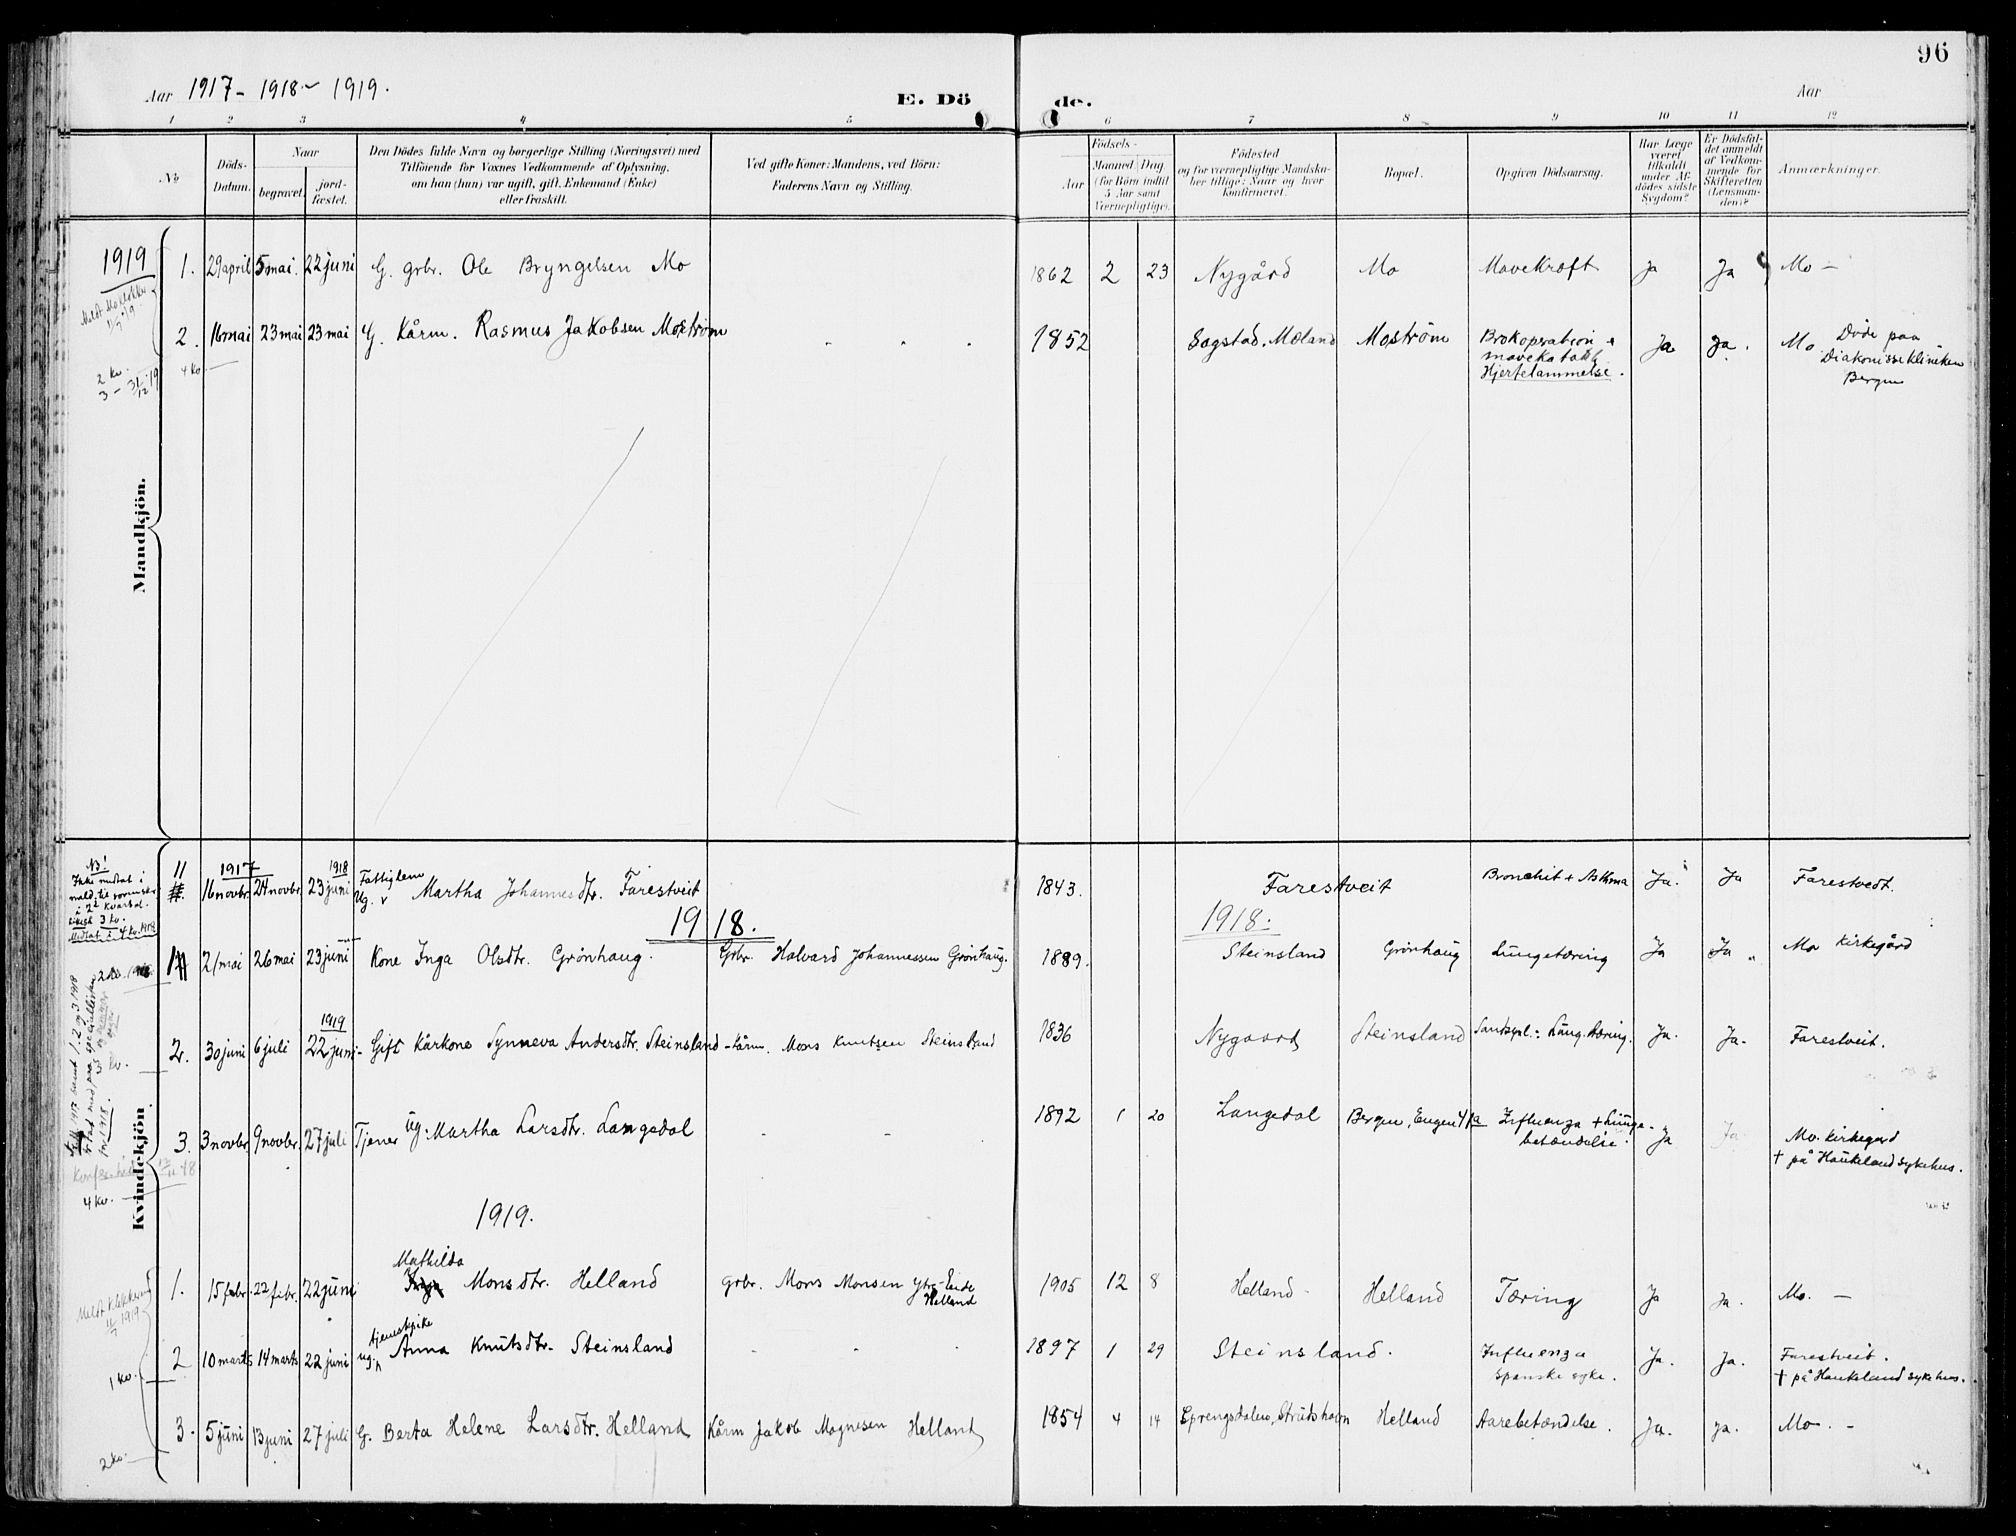 96
Aar 1917 - 1918 - 1919.
E. Dö de.
Aar
1 2 3 4 5 6 7 8 9 10 11 12
No
Döds-Datum.
Naar
begravet.
jord-fæstet.
Den Dödes fulde Navn og borgerlige Stilling (Næringsvei) med
Tilföiende for Voxnes Vedkommende af Oplysning,
om han (hun) var ugift, gift, Enkemand (Enke)
eller fraskilt.
Ved gifte Koner: Mandens, ved Börn:
Faderens Navn og Stilling.
Födsels-
Aar
Maaned Dag
(for Börn indtil
5 Aar samt
Værnepligtige).
Födested
og for værnepligtige Mandska-
ber tillige: Naar og hvor
konfirmeret.
Bopæl.
Opgiven Dödsaarsag.
Har Læge
været
tilkaldt
under Af-
dödes sidste
Sygdom?
Er Dödsfal-
det anmeldt
af Vedkom-
mende for
Skifteretten
(Lensman-
den)?
Anmærkninger.
Mandkjön.
1919
1. 29 april 5 mai. 22 juni G. grbr. Ole Bryngelsen Mo 1862 2 23 Nygård Mo Mavekræft Ja Ja Mo -
2. 16 mai 23 mai 23 mai G. Kårm. Rasmus Jakobsen Moström 1852 Sagstad. Mæland Moström Brokoperation +
mavekatarh
Hjertelammelse. Ja Ja. Mo Döde paa
Diakonisseklinikken
Bergen
2 kv.
3 - 31/12 19
4 kv. -
Kvindekjön.
NB!
1917
11 16 novbr. 24 novbr. 1918 23 juni Fattiglem
Ug. v Martha Johannesdtr. Farestveit 1843. Farestveit Bronchit + Asthma Ja. Ja Farestvedt.
1918.
1918.
1 21 mai 26 mai 23 juni Kone Inga Olsdtr. Grönhaug. Grbr. Halvard Johannessen Grönhaug. 1889. Steinsland Grönhaug Lungetæring Ja Ja Mo Kirkegård
2. 30 juni 6 juli 1919 22 juni - Gift Kårkone Synneva Andersdtr. Steinsland - Kårm. Mons Knutsen Steinsland 1836 Nygaard Steinsland Lung. tæring. Ja. Ja. Farestveit.
3. 3 novbr. 9 novbr. 27 juli Tjener ug. Martha Larsdtr. Langedal 1892 1 20 Langedal Bergen, Engen Influenza + Lunge-
betændelse. Ja Ja Mo. Kirkegård
† på Haukeland sykehus.
4 kv.
1919.
1. 15 febr. 22 febr. 22 juni Mathilda
Inga Monsdtr. Helland grbr. Mons Monsen Ytre-Eide
Helland 1905 12 8 Helland - Helland Tæring Ja Ja. Mo. -
2 10 marts 14 marts 22 juni tjenestpike
ug. Anna Knutsdtr. Steinsland 1897 1 29 Steinsland. Influenza
spanske syke. Ja. Ja. Farestveit.
† på Haukeland sykehus.
1 kv.
3. 5 juni 13 juni 27 juli G. Berta Helene Larsdtr. Helland Kårm Jakob Magnesen Helland 1854 4 14 Sprengsdalen, Strudshavn Helland Aarebetændelse. Ja. Ja. Mo. -
2 kv.